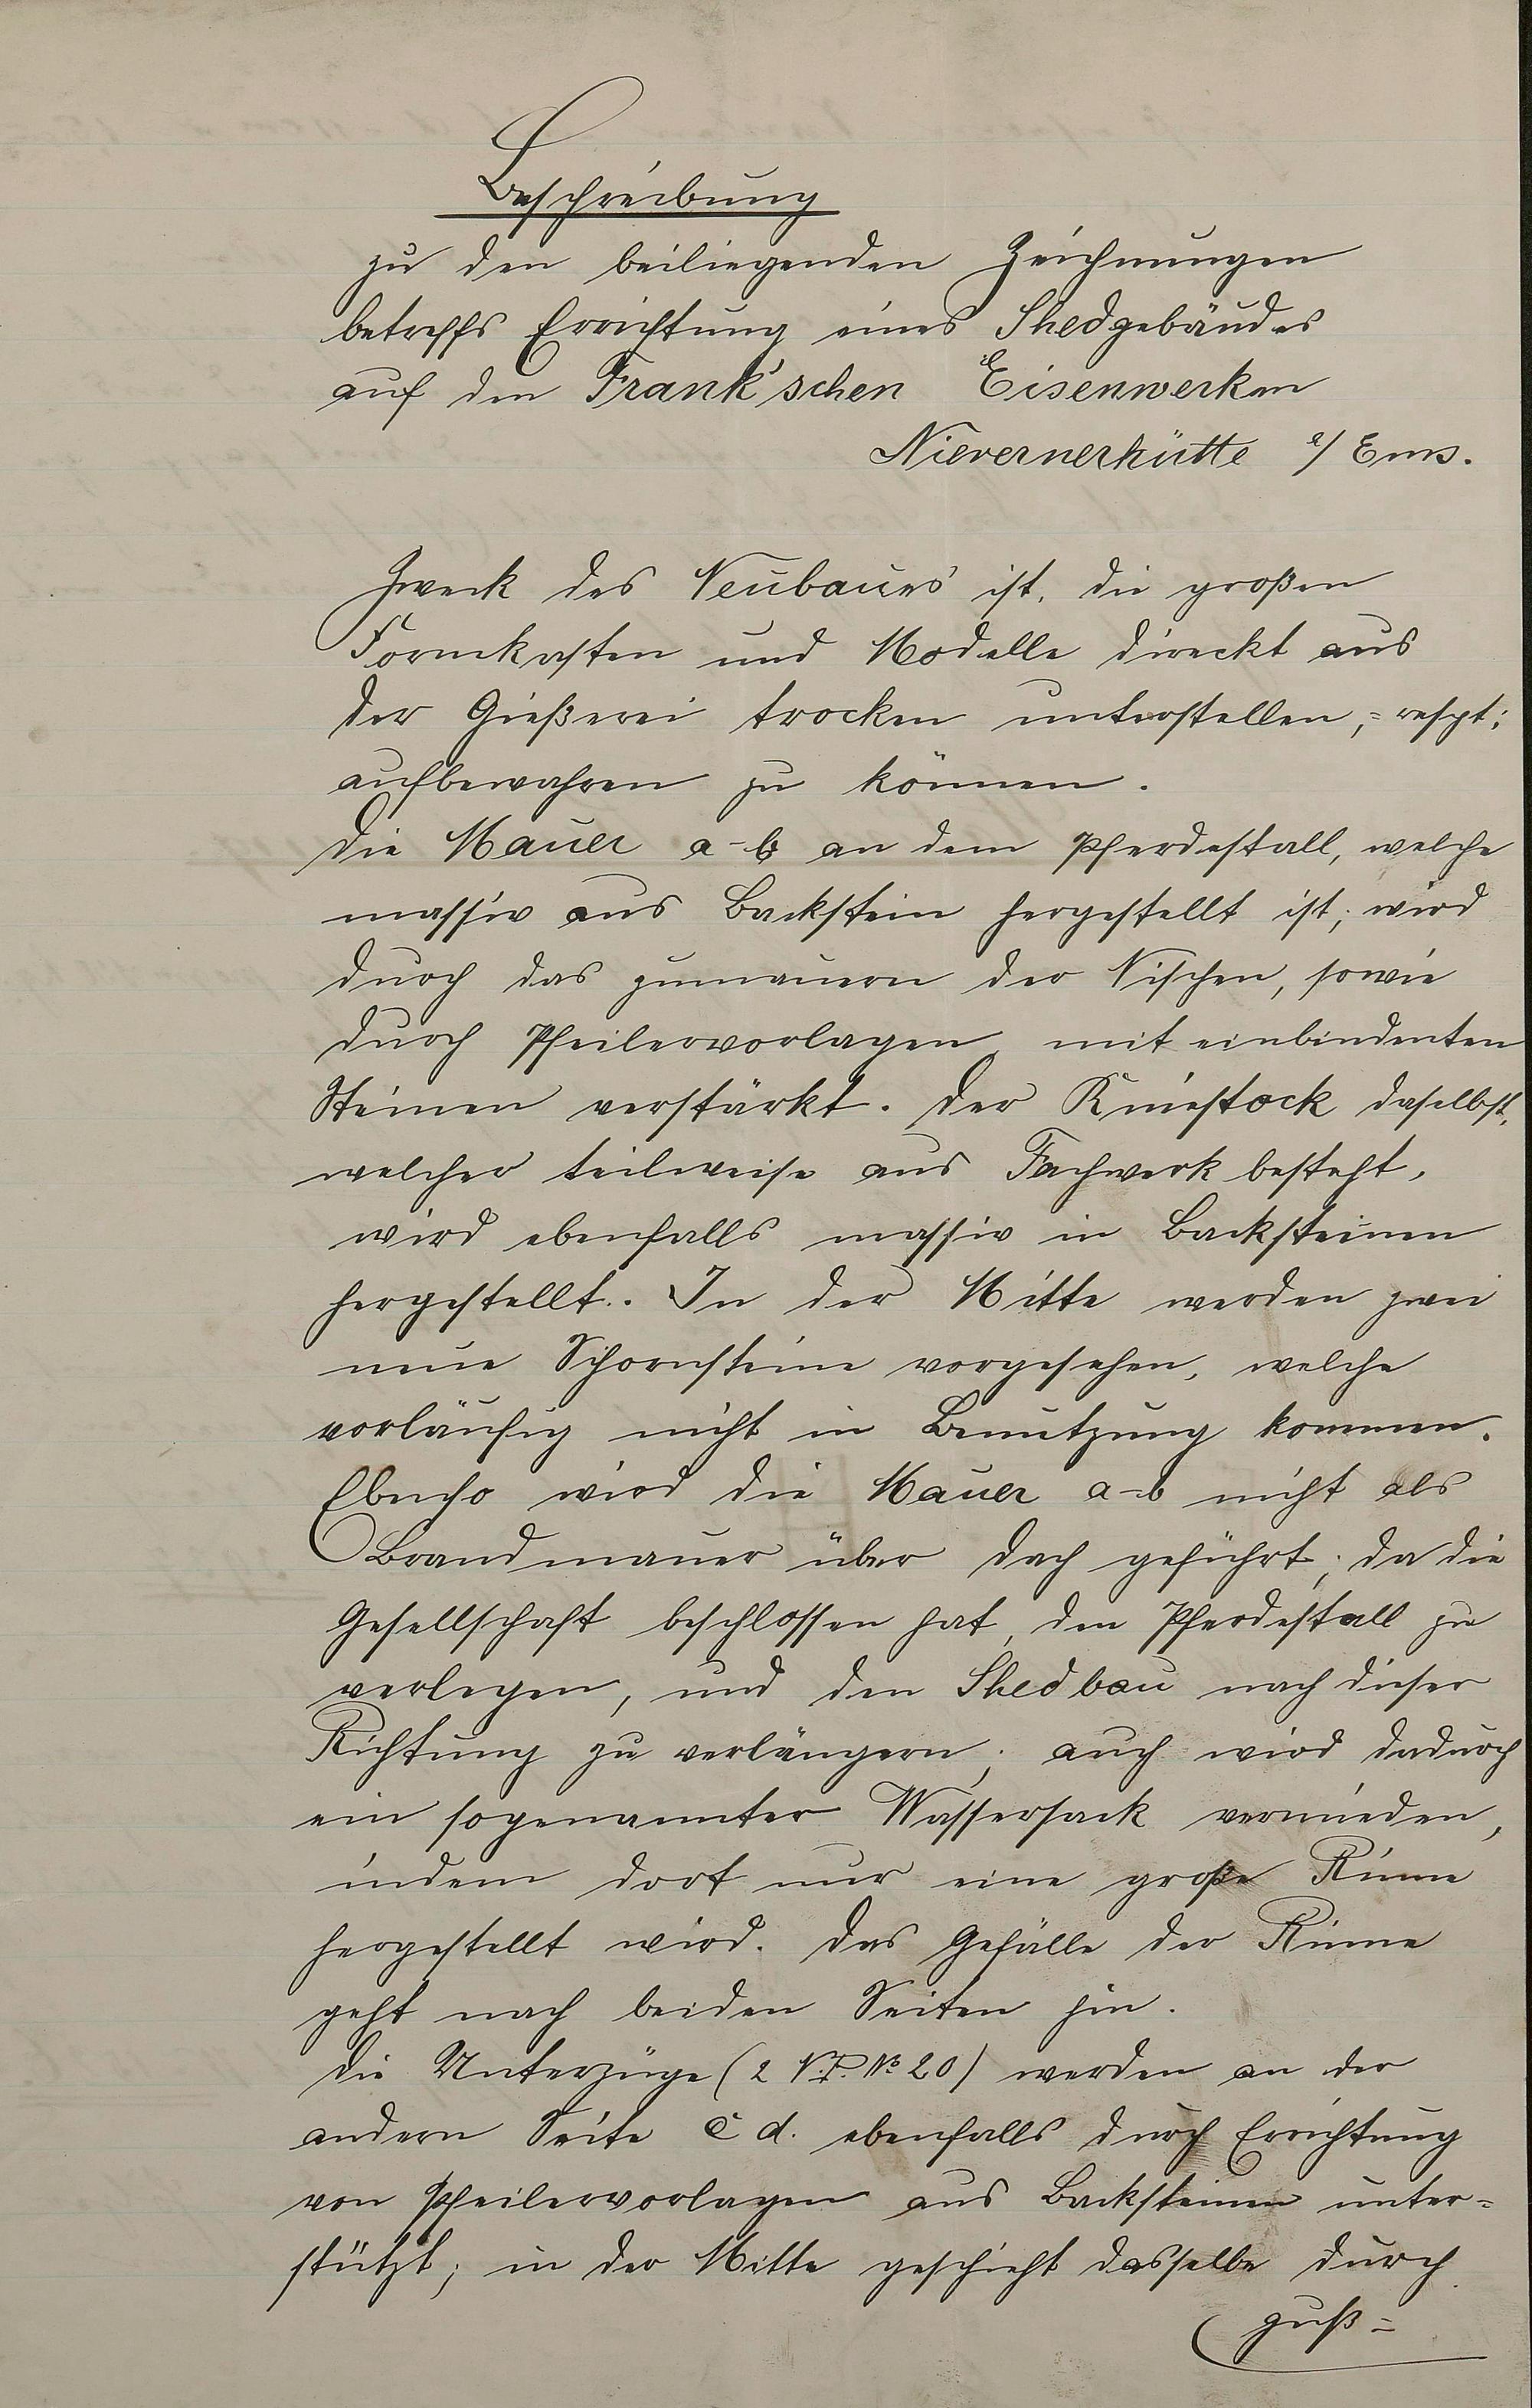 Beschreibung
zu den beiliegenden Zeichnungen
betreffs Errichtung eines Shedgebäudes
auf den Frank'schen Eisenwerken
Nievernerhütte a/ Ems.
Zweck des Neubaues ist, die großen
Formkasten und Modelle direckt aus
der Gießerei trocken unterstellen,= respt:
aufbewahren zu können.
Die Mauer a-b an dem Pferdestall, welche
massiv aus Backstein hergestellt ist, wird
durch das zumauern der Nischen, sowie
durch Pfeilervorlagen mit einbindenten
Steinen verstärkt. Der Kniestock daselbst,
welcher teilweise aus Fachwerk besteht,
wird ebenfalls massiv in Backsteinen
hergestellt. In der Mitte werden zwei
neue Schornsteine vorgesehen, welche
vorläufig nicht in Benutzung kommen.
Ebenso wird die Mauer a-b nicht als
Brandmauer über Dach geführt, da die
Gesellschaft beschlossen hat, den Pferdestall zu
verlegen, und den Shedbau nach dieser
Richtung zu verlängern; auch wird dadurch
ein sogenannter Wassersack vermieden,
indem dort nur eine große Rinne
hergestellt wird. Das Gefälle der Rinne
geht nach beiden Seiten hin.
Die Unterzüge (2 N.P. No 20) werden an der
andern Seite c d. ebenfalls durch Errichtung
von Pfeilervorlagen aus Backsteinen unter=
stützt; in der Mitte geschieht dasselbe durch
guß=